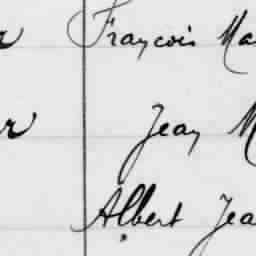 François Ma
Jean M
Albert Jea